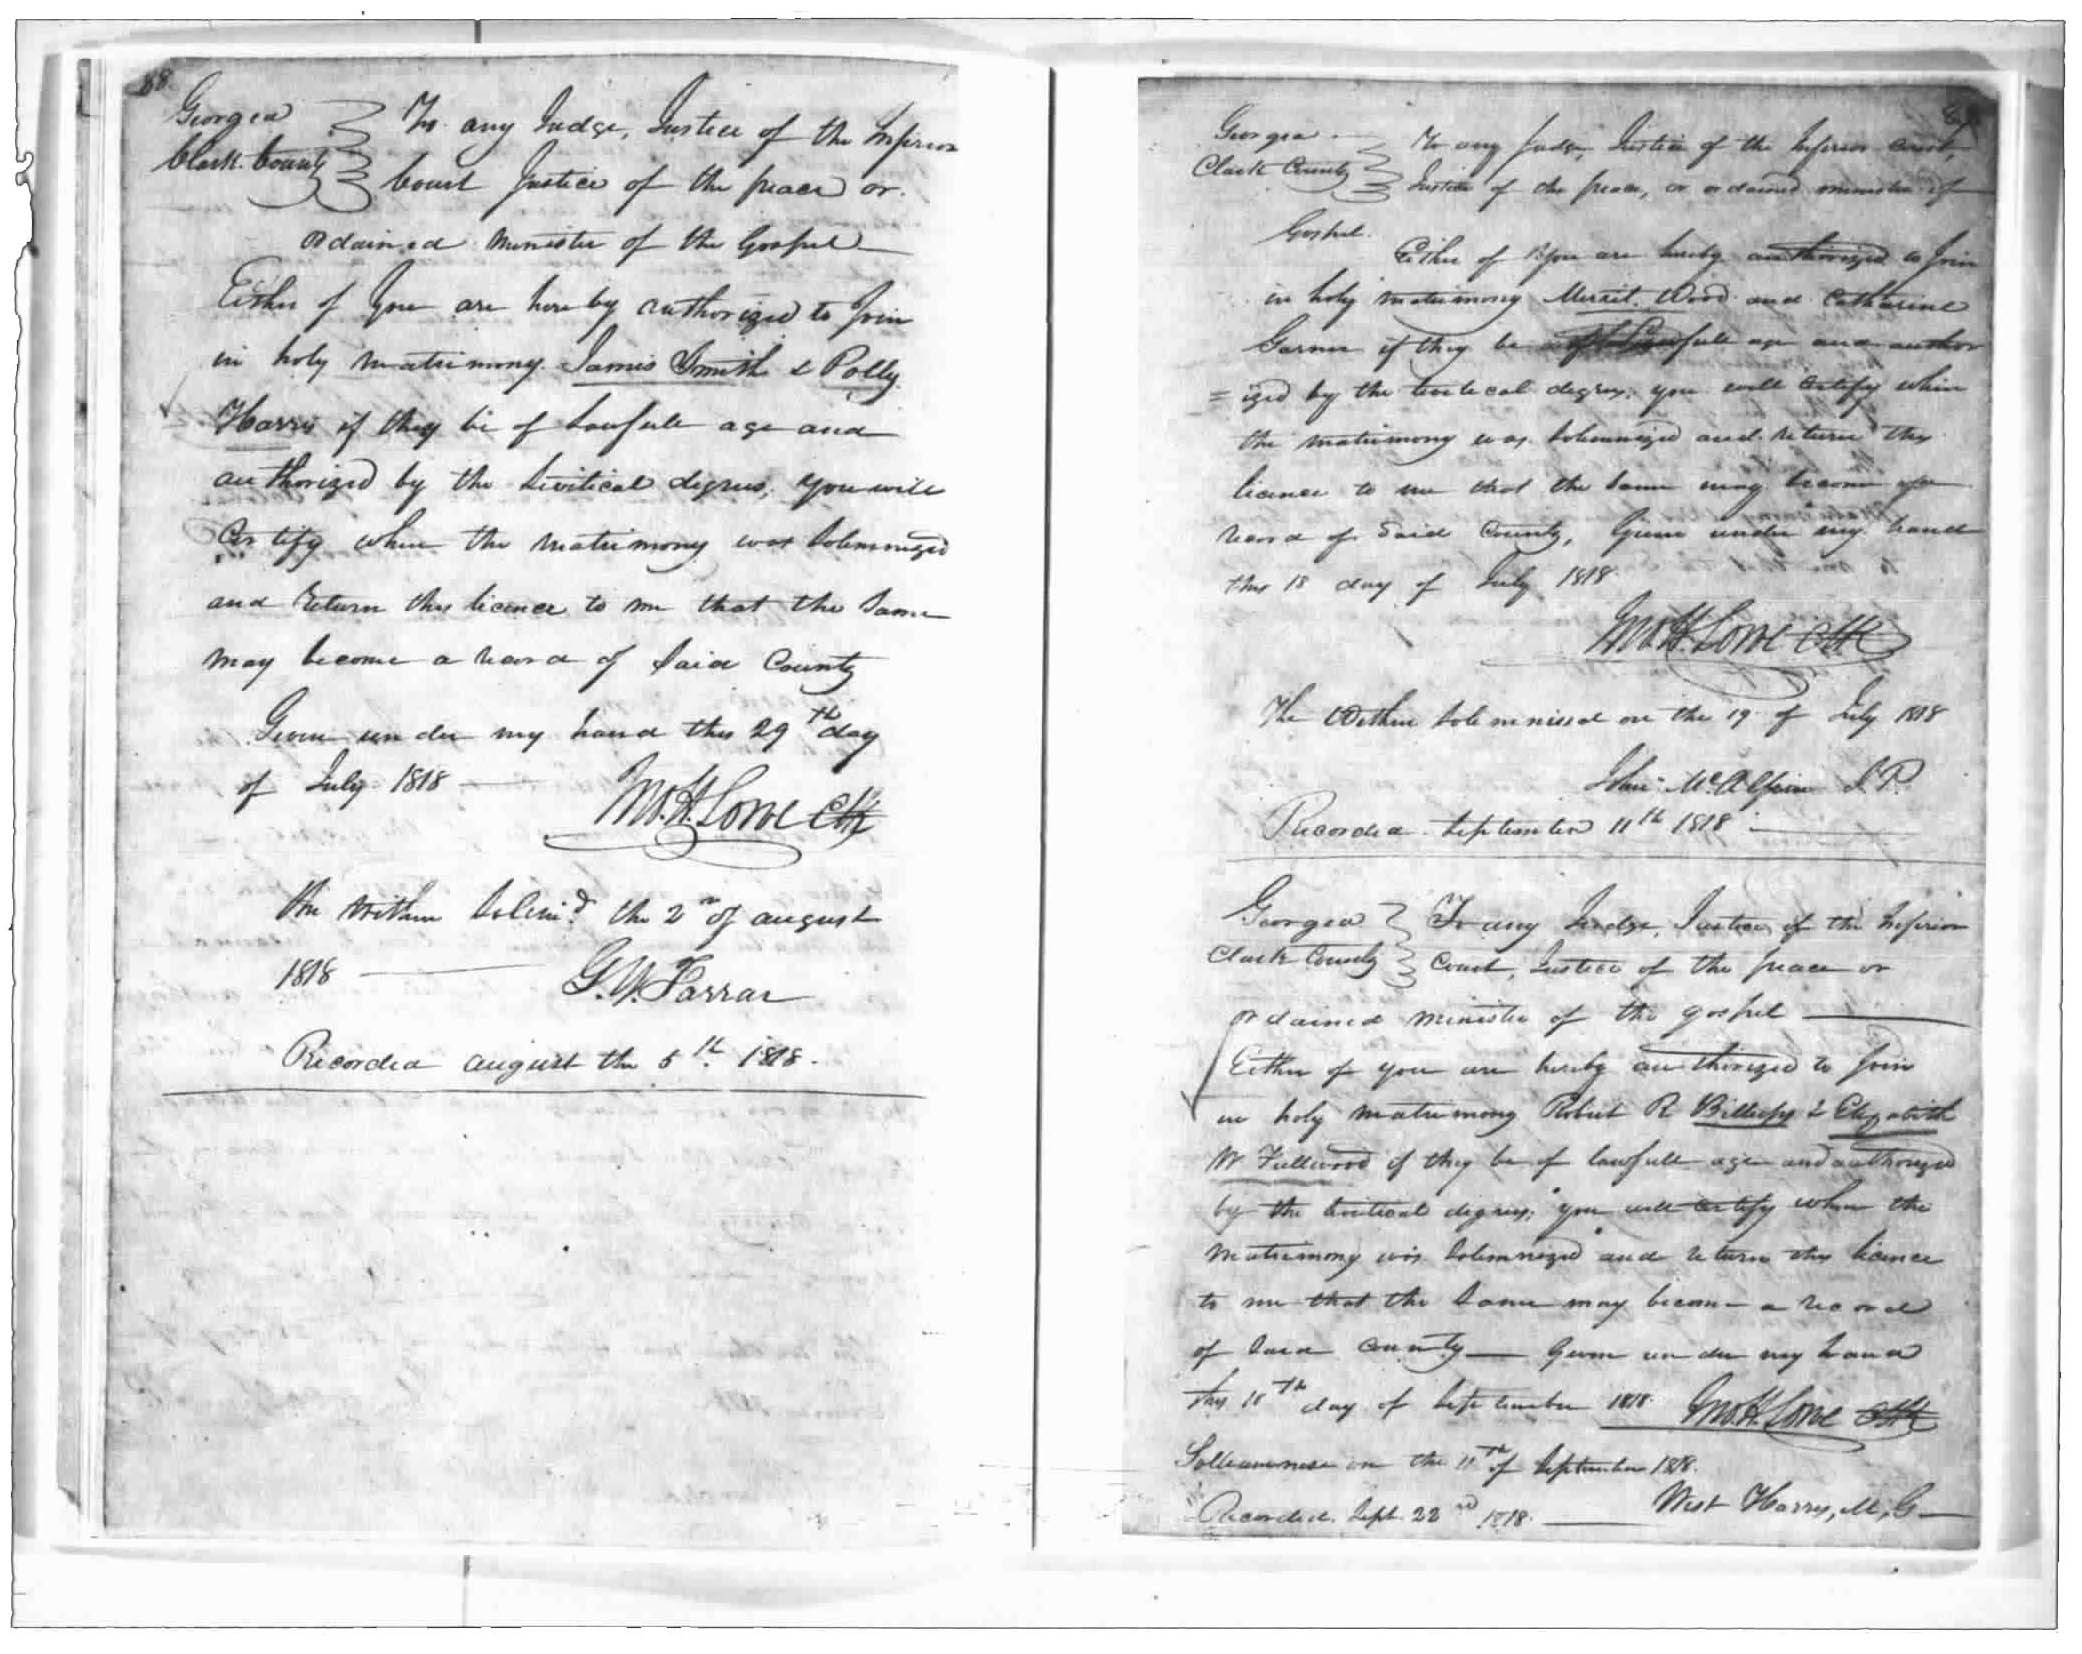 88
Georgia
Clark County
To any Judge, Justice of the Inferior
Court Justice of the peace or
ordained minister of the Gospel
Either of you are hereby authorized to Join
in holy matrimony James Smith & Polly
Harris if they be of lawfull age and
authorized by the Levitical degrees, you will
Certify when the matrimony was solemnized
and return this licence to me that the same
may become a record of said County
Given under my hand this 29th day
of July 1818
Jno. H. Lowe Clk
the within Solem.d the 2n of august
1818
G. Y. Farrar
Recorded august the 5th 1818.
Georgia
Clark County
To any Judge, Justice of the Inferior Court,
Justice of the peace, or ordained minister of
Gospel.
Either of you are hereby authorized to Join
in holy matrimony Merrit. Wood and Catharine
Garner if they be of lawfull age and author
=ized by the Levitical degrees, you will certify when
the matrimony was solemnized and return this
licence to me that the same may become
record of said County, Given under my hand
this 18 day of July 1818.
Jno. H. Lowe Clk
The Within solemnised on the 19 of July 1818
McAlpin J.P.
Recorded September 11th 1818
Georgia
Clark County
To any Judge, Justice of the Inferior
Court, Justice of the peace or
ordained minister of the gospel
Either of you are hereby authorized to Join
in holy matrimony Robert R Billups & Elizabeth
W Fullwood if they be of lawfull age and authorized
by the Levitical degrees, you will certify when the
matrimony was solemnized and return this licence
to me that the same may become a record
of said county Given under my hand
this 10th day of September 1818. Jno. H. Lowe Clk
on the 11th of September 1818.
West Harris, M, G
Recorded. Sept. 22nd 1818.